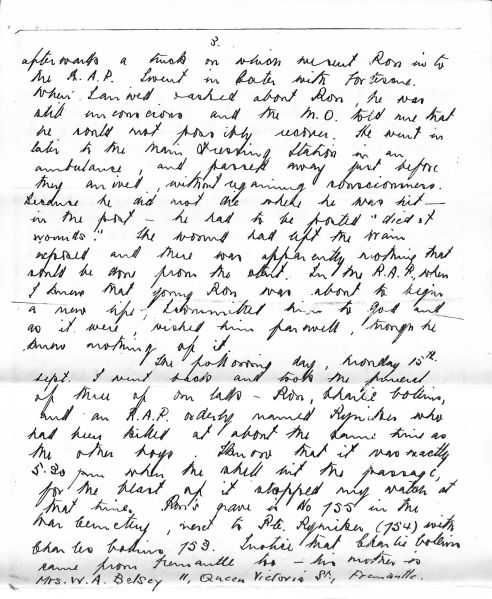 3.
afterwards a truck on which we sent Ron in to
the R.A.P. I went in later with Fortescue.
When I arrived & asked about Ron, he was
still unconscious and the M.O. told me that
he could not possibly recover. He went in
later to the Main Dressing Station in an
ambulance, and passed away just before
they arrived, without regaining consciousness.
Because he did not die where he was hit —
in the post — he had to be posted "died of
wounds." The wound had left the brain
exposed and there was apparently nothing that
could be done from the start. In the R.A.P., when
I knew that young Ron was about to begin
a new life, I committed him to God and
as it were, wished him farewell, though he
knew nothing of it.
The following day, Monday 15th
Sept. I went back and took the funeral
of three of our lads — Ron, Charlie Collins,
and an R.A.P. orderly named Rymiker who
had been killed at about the same time as
the other boys. I know that it was exactly
5.20 pm when the shell hit the passage,
for the blast of it stopped my watch at
that time. Ron's grave is No 155 in the
War Cemetery, next to Pte. Rymiker (154) with
Charles Collins, 153. I notice that Charlie Collins
came from Fremantle too — his mother is
Mrs. W. A. Betsey 11, Queen Victoria St, Fremantle.